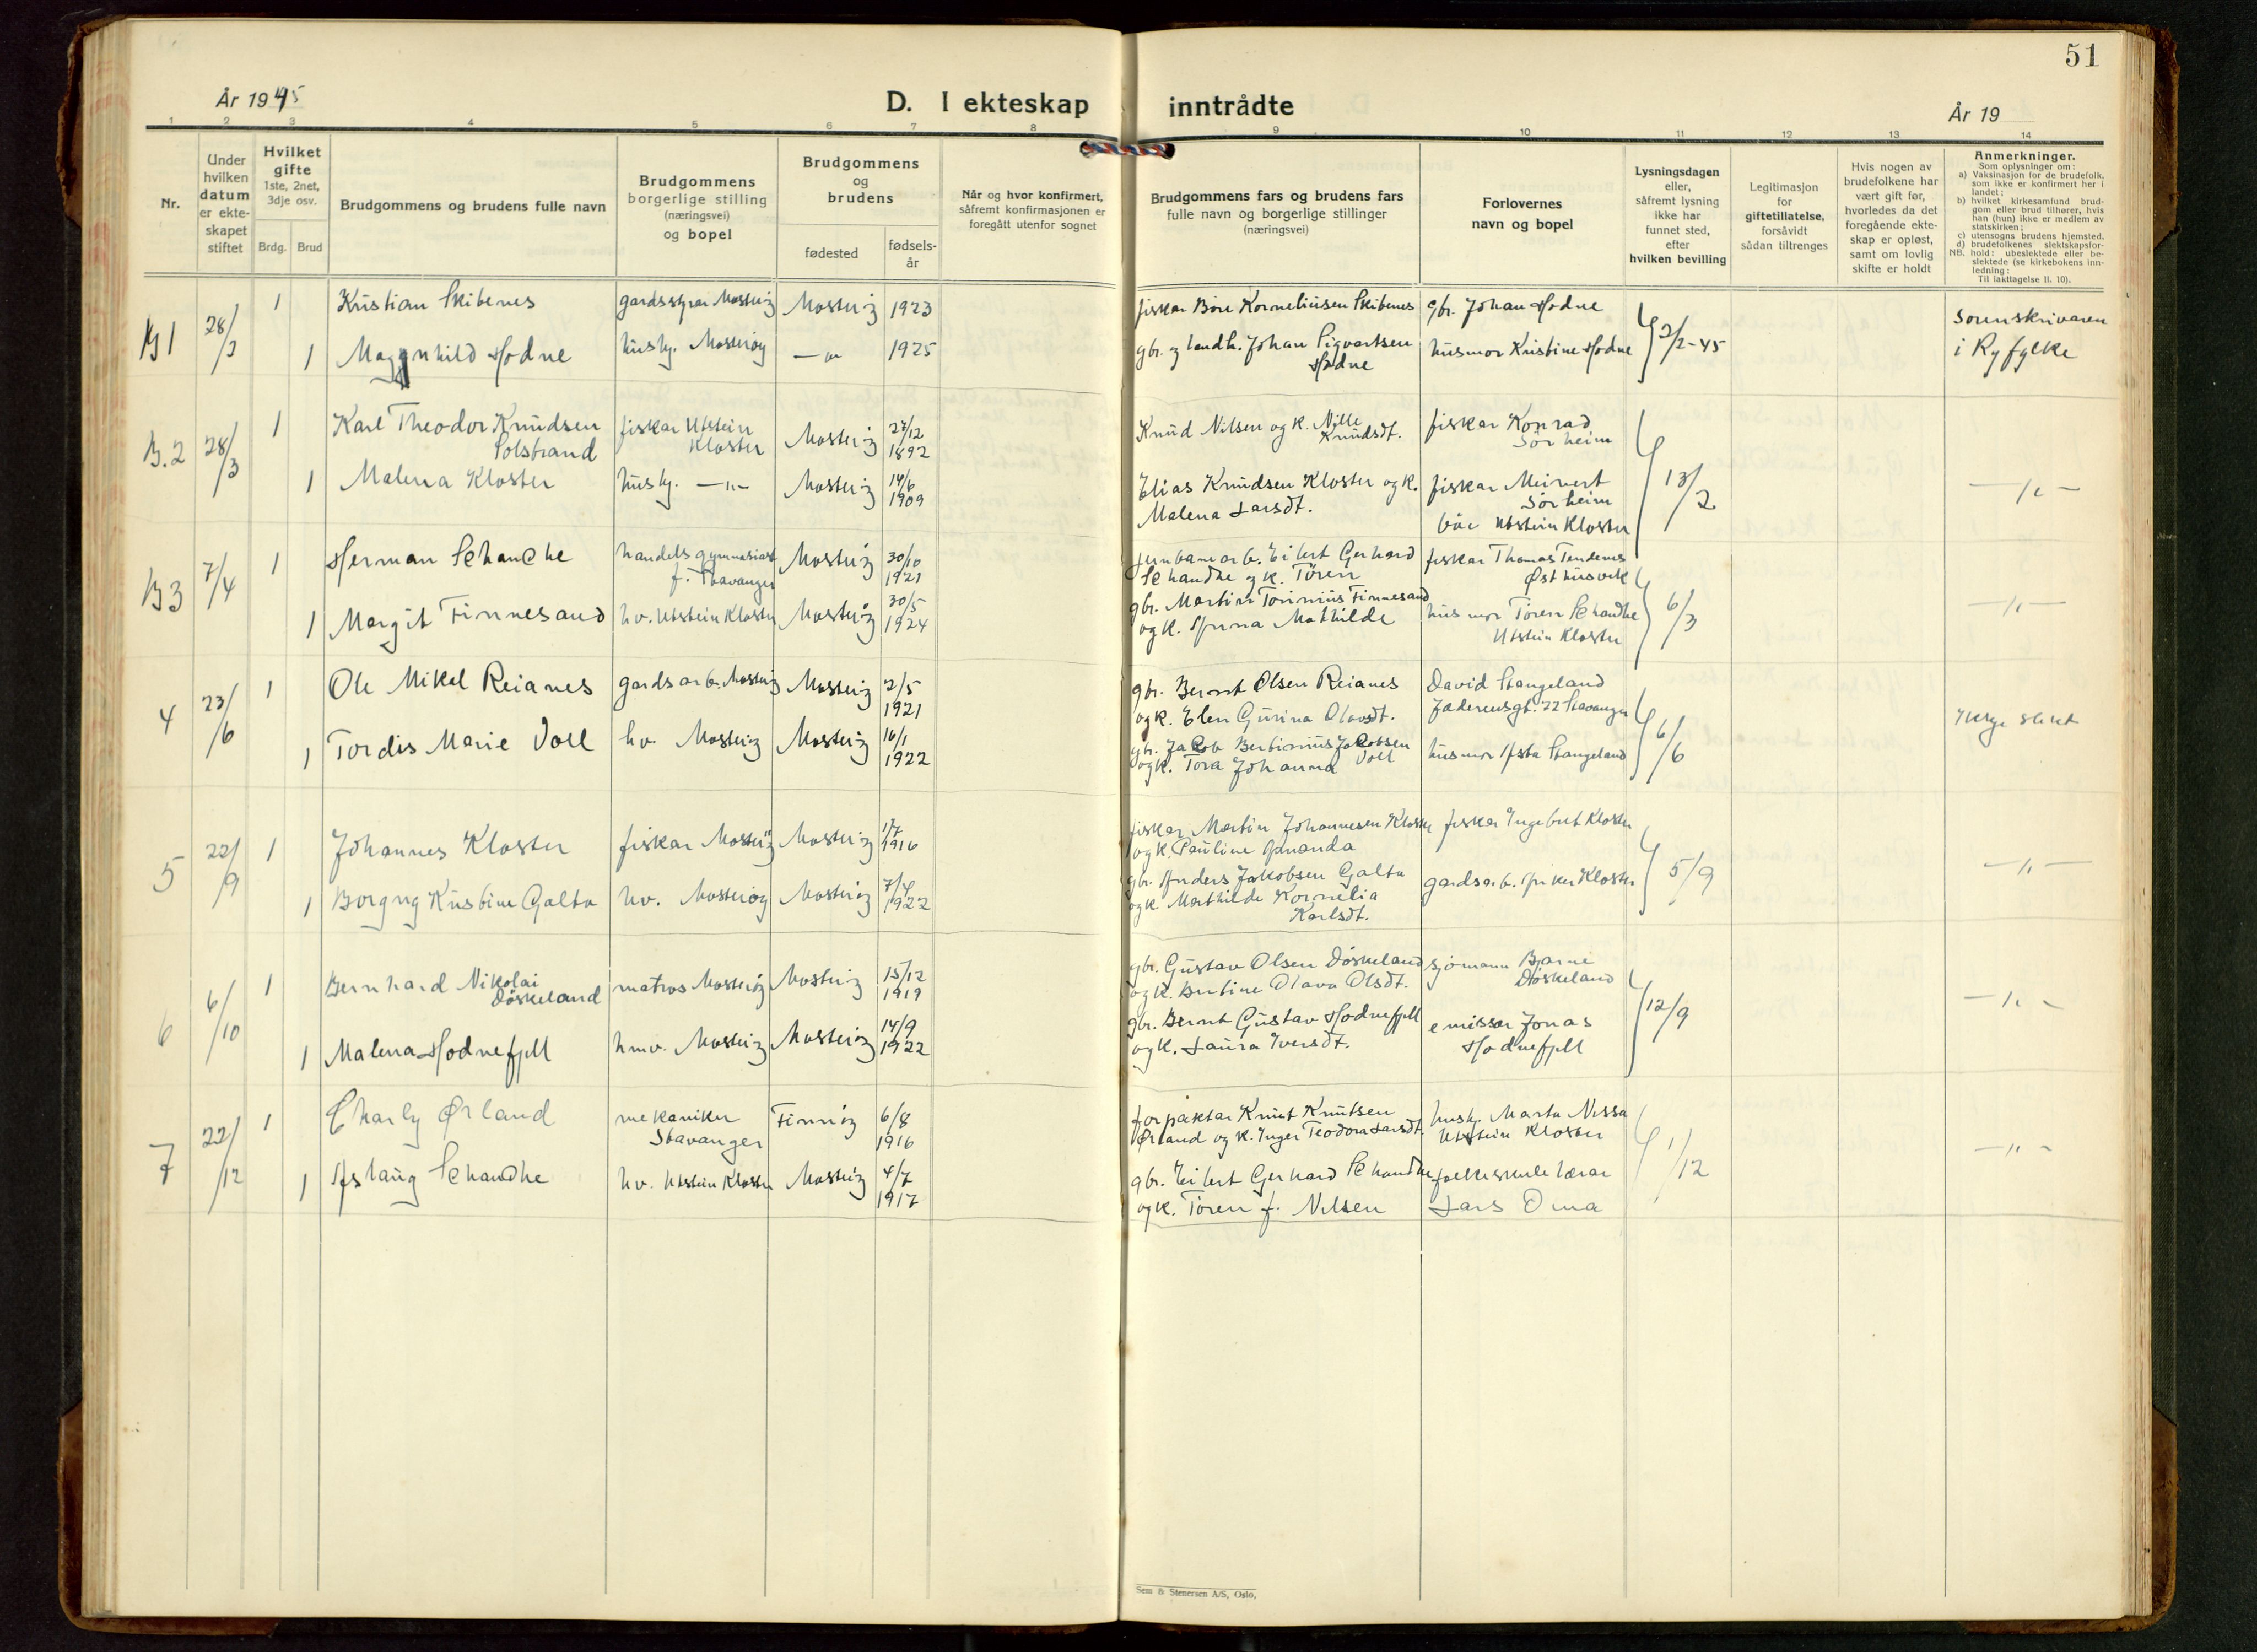 51
År 1945
D. I ekteskap inntrådte
År 19
1 2 3 4 5 6 7 8 9 10 11 12 13 14
Nr.
Under hvilken datum er ekte-skapet stiftet
Hvilket gifte 1ste, 2net, 3dje osv.
Brdg. Brud
Brudgommens og brudens fulle navn
Brudgommens borgerlige stilling (næringsvei) og bopel
Brudgommens og brudens
fødested
fødsels-år
Når og hvor konfirmert, såfremt konfirmasjonen er foregått utenfor sognet
Brudgommens fars og brudens fars fulle navn og borgerlige stillinger (næringsvei)
Forlovernes navn og bopel
Lysningsdagen eller, såfremt lysning ikke har funnet sted, efter hvilken bevilling
Legitimasjon for giftetillatelse, forsåvidt sådan tiltrenges
Hvis nogen av brudefolkene har vært gift før, hvorledes da det foregående ekte-skap er opløst, samt om lovlig skifte er holdt
Anmerkninger.
Som oplysninger om:
a) Vaksinasjon for de brudefolk, som ikke er konfirmert her i landet;
b) hvilket kirkesamfund brud-gom eller brud tilhører, hvis han (hun) ikke er medlem av statskirken;
c) utensogns brudens hjemsted.
d) brudefolkenes slektskapsfor-hold: ubeslektede eller be-slektede (se kirkebokens inn-ledning:
NB.
Til iakttagelse II. 10).
B1 28/3 1 Kristian Skibenes gardsstyrar Mosterøy Mosterøy 1923 fiskar Bore Korneliusen Skibenes gbr. Johan Hodne 2/2-45 Sorenskrivaren
1 Magnhild Hodne hushj. Mosterøy —"— 1925 gbr. og landh. Johan Sigvartsen Hodne husmor Kristine Hodne i Ryfylke
B.2 28/3 1 Karl Theodor Knudsen Solstrand fiskar Utstein Kloster Mosterøy 27/12 1892 Knud Nilsen og k. Nille Knudsdt. fiskar Konrad Sørheim 13/2 —"—
1 Malena Kloster hushj. —"— Mosterøy 14/6 1909 Elias Knudsen Kloster og k. Malena Larsdt. fiskar Meinert Sørheim
båe Utstein Kloster
B3 7/4 1 Herman Schanche handelsgymnasiast f. Stavanger Mosterøy 30/10 1921 jernbanearb. Eilert Gerhard Schandhe og k. Tören fiskar Thomas Tendenes Østhusvik 6/3 —"—
1 Margit Finnesand hv. Utstein Kloster Mosterøy 30/5 1924 gbr. Martin Tominius Finnesand og k. Anna Mathilde husmor Tören Schandhe Utstein Kloster
4 23/6 1 Ole Mikal Reianes gardsarb. Mosterøy Mosterøy 2/5 1921 gbr. Bernt Olsen Reianes og k. Elen Gurina Olavsdt. David Stangeland Jæderensgt. 22 Stavanger 6/6 Ikkje slekt
1 Tordis Marie Voll hv. Mosterøy Mosterøy 16/1 1922 gbr. Jakob Bertinius Jakobsen Voll og k. Tora Johanna husmor Asta Stangeland
5 22/9 1 Johannes Kloster fiskar Mosterøy Mosterøy 1/7 1916 fiskar Martin Johannesen Kloster og k. Pauline Amanda fiskar Ingebret Kloster 5/9 —"—
1 Borgny Kristine Galta hv. Mosterøy Mosterøy 7/4 1922 gbr. Anders Jakobsen Galta og k. Marthilde Kornelia Karlsdt. gardsarb. Anker Kloster
6 6/10 1 Bernhard Nikolai Døskeland matros Mosterøy Mosterøy 15/12 1919 gbr. Gustav Olsen Døskeland og k. Bertine Olava Olsdt. sjømann Bjarne Døskeland 12/9 —"—
1 Malena Hodnefjell hmv. Mosterøy Mosterøy 14/9 1922 gbr. Bernt Gustav Hodnefjell og k. Laura Iversdt. emissær Jonas Hodnefjell
7 22/12 1 Charly Ørland mekaniker Stavanger Finnøy 6/8 1916 forpaktar Knut Knutsen Ørland og k. Inger Teodora Larsdt. hushj. Marta Nessa Utstein Kloster 1/12 —"—
1 Aslaug Schandhe hv. Utstein Kloster Mosterøy 4/7 1917 gbr. Eilert Gerhard Schandhe og k. Tören f. Nilsen folkeskulelærar Lars Oma
Sem & Stenersen A/S, Oslo.